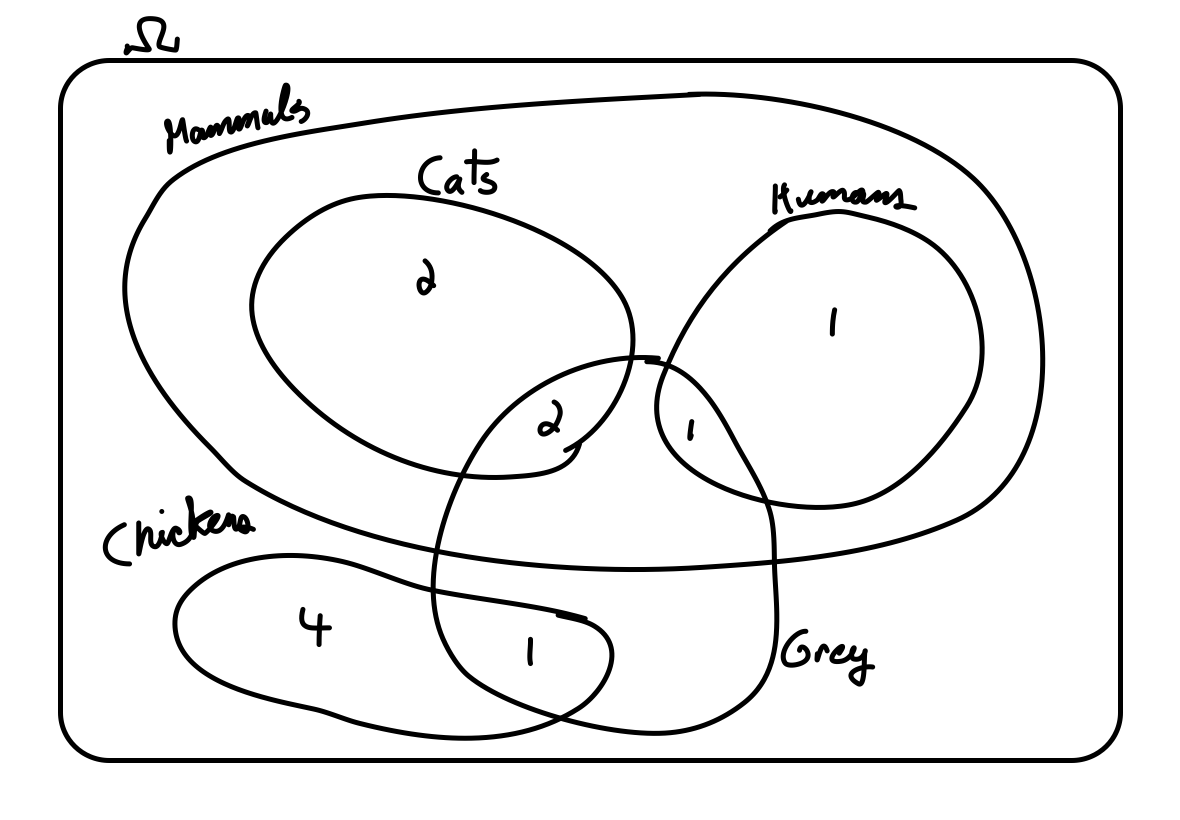 Ω
Mammals
Cats
Humans
2
1
2
1
Chickens
4
1
Grey